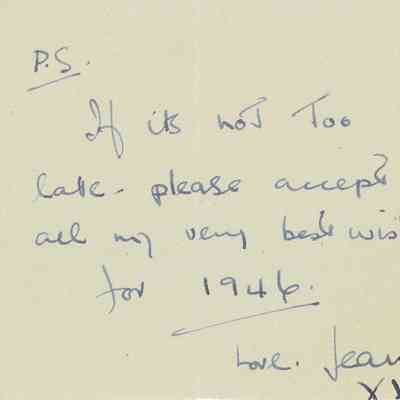 P.S.
If its not Too
late - please accept
all my very best wis
for 1946.
Love. Jean
XX